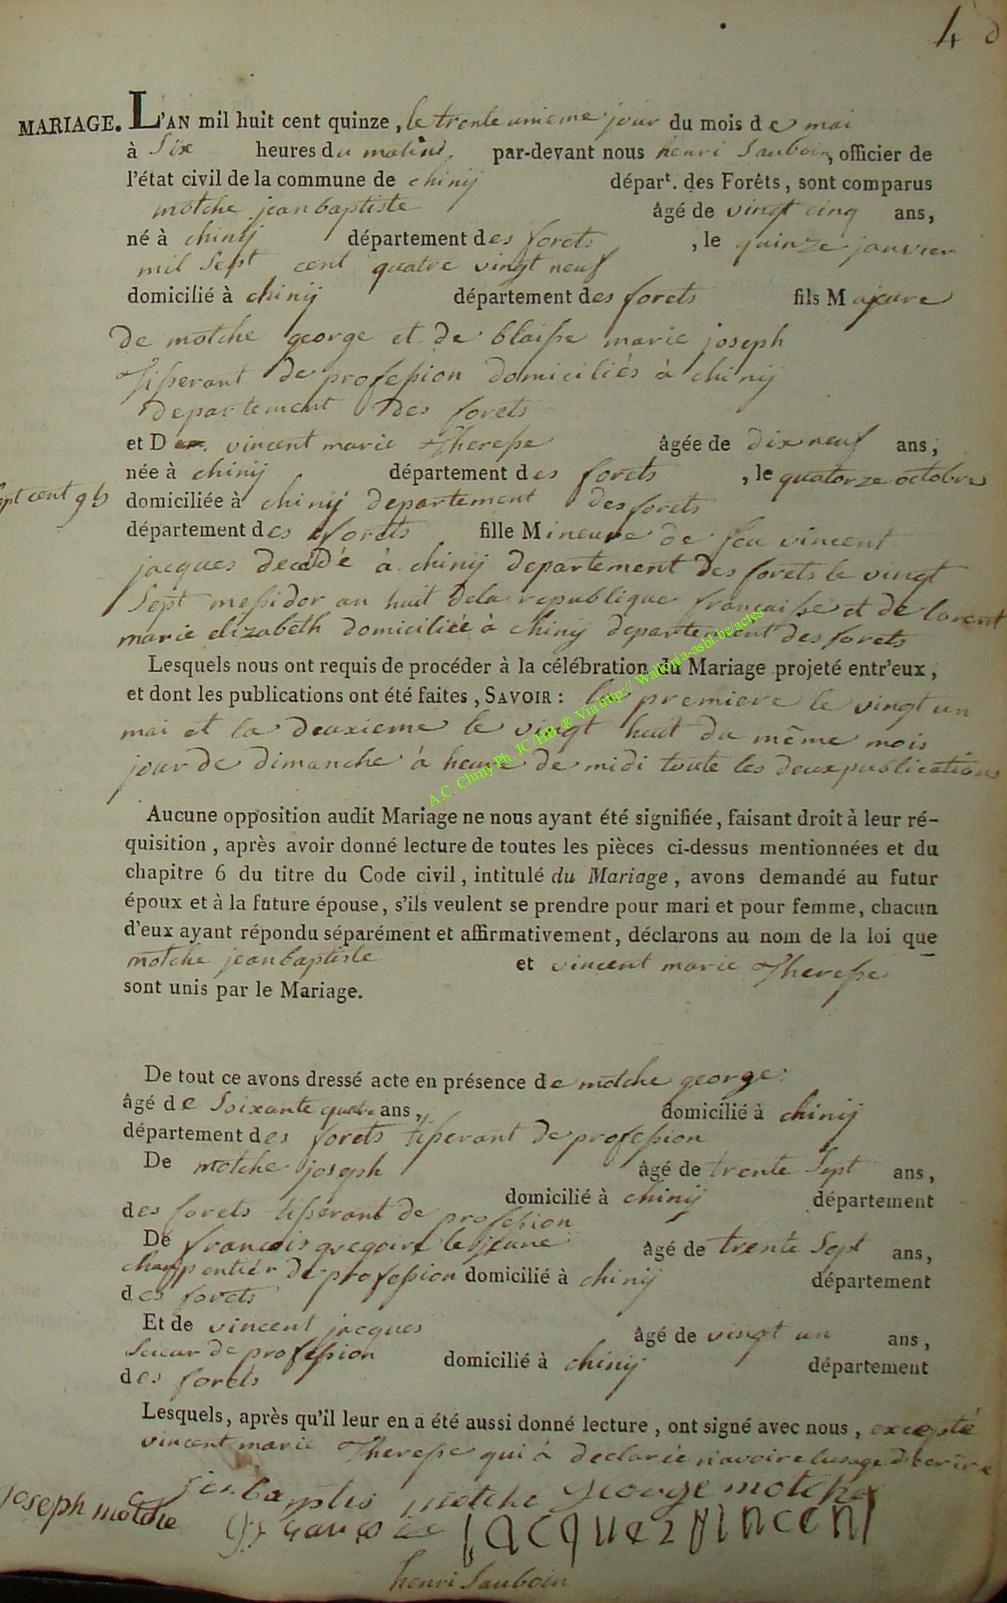 4
MARIAGE. L'AN mil huit cent quinze, le trente unieme jour du mois de mai
à Six heures du matins, par-devant nous henri Sauboin, officier de
l'état civil de la commune de chinij départ. des Forêts, sont comparus
motche jean baptiste âgé de vingt cinq ans,
né à chinij département des forets, le quinze janvier
mil Sept cent quatre vingt neuf
domicilié à chinij département des forets fils Majeure
de motche george et de blaisse marie joseph
tisserant de profession domiciliés à chinij
departement des forets
et D vincent marie Therese âgée de dix neuf ans,
née à chinij département des forets, le quatorze octobre
sept cent 95 domiciliée à chinij departement des forets
département des forets fille Mineure de feu vincent
jacques decédé à chinij departement des forets le vingt
Sept messidor an huit dela republique française et de lorent
marie elizabeth domiciliée à chinij departement des forets
Lesquels nous ont requis de procéder à la célébration du Mariage projeté entr'eux,
et dont les publications ont été faites, SAVOIR : la premiere le vingt un
mai et la deuxieme le vingt huit du même mois
jour de dimanche à heure de midi toute les deux publications
Aucune opposition audit Mariage ne nous ayant été signifiée, faisant droit à leur ré-
quisition, après avoir donné lecture de toutes les pièces ci-dessus mentionnées et du
chapitre 6 du titre du Code civil, intitulé du Mariage, avons demandé au futur
époux et à la future épouse, s'ils veulent se prendre pour mari et pour femme, chacun
d'eux ayant répondu séparément et affirmativement, déclarons au nom de la loi que
motche jean baptiste et vincent marie Therese
sont unis par le Mariage.
De tout ce avons dressé acte en présence de motche george
âgé de Soixante quatre ans, domicilié à chinij
département des forets tisserant de profession
De motche joseph âgé de trente Sept ans,
domicilié à chinij département
des forets tisserant de profession
De francois gregoire le jeune âgé de trente Sept ans,
charpentier de profession domicilié à chinij département
des forets
Et de vincent jacques âgé de vingt un ans,
Scieur de profession domicilié à chinij département
des forets
Lesquels, après qu'il leur en a été aussi donné lecture, ont signé avec nous, excepté
vincent marie Therese qui à declarée n'avoire lusage d'ecrire
joseph motche motche george motche
jacques vincent
henri Sauboin
A.C. Chiny Ph. JC /HB ® Via http:// Wallonia-asbl.be/actes